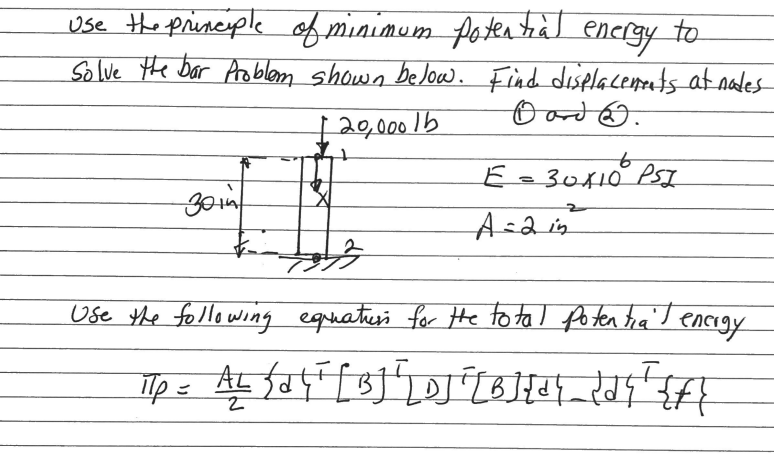 Use the principle of minimum potential energy to
solve the bar problem shown below. Find displacements at nodes
① and ②.
20,000 lb
1
E = 30x10⁶ PSI
x
30 in
A = 2 in²
2
Use the following equation for the total potential energy
πp = AL/2 {d}ᵀ [B]ᵀ [D]ᵀ [B]{d} - {d}ᵀ {f}